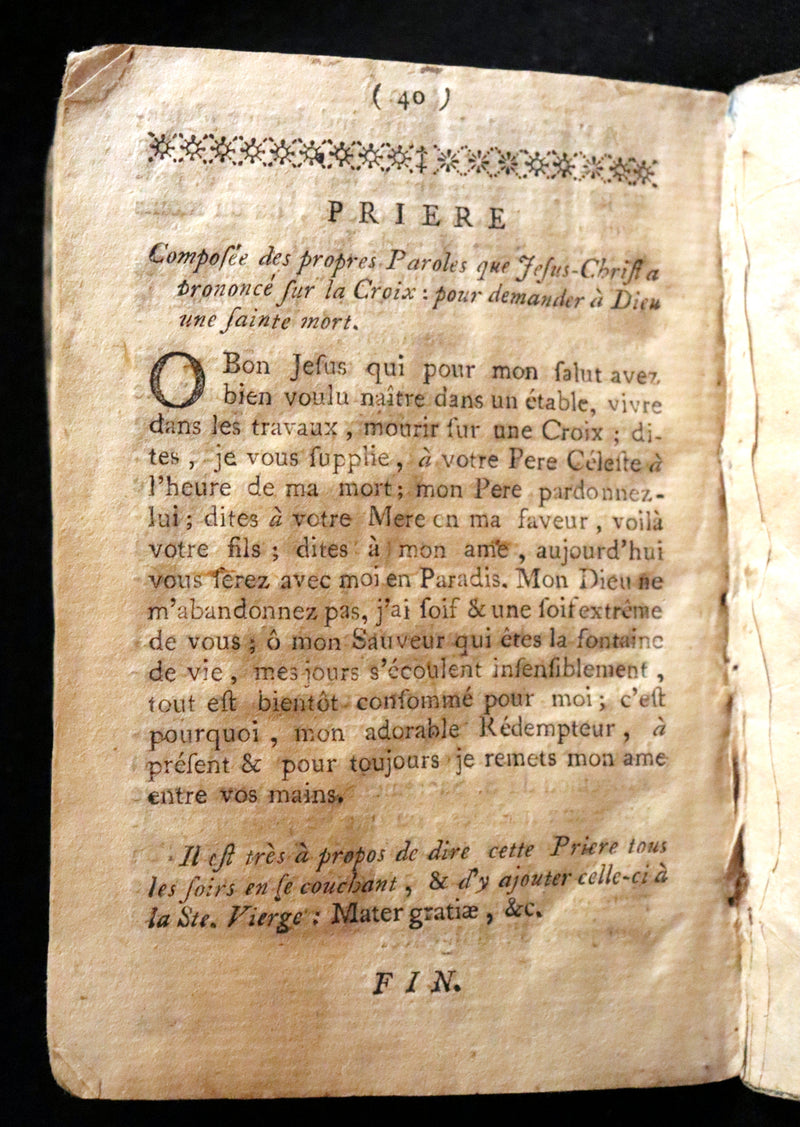 ( 40 )
PRIERE
Composée des propres Paroles que Jesus-Christ a
prononcé sur la Croix : pour demander à Dieu
une sainte mort.
O Bon Jesus qui pour mon salut avez
bien voulu naître dans un étable, vivre
dans les travaux , mourir sur une Croix ; di-
tes , je vous supplie , à votre Pere Céleste à
l'heure de ma mort ; mon Pere pardonnez-
lui ; dites à votre Mere en ma faveur , voilà
votre fils ; dites à mon ame , aujourd'hui
vous serez avec moi en Paradis. Mon Dieu ne
m'abandonnez pas, j'ai soif & une soif extrême
de vous ; ô mon Sauveur qui êtes la fontaine
de vie , mes jours s'écoulent insensiblement ,
tout est bientôt consommé pour moi ; c'est
pourquoi , mon adorable Rédempteur , à
présent & pour toujours je remets mon ame
entre vos mains.
Il est très à propos de dire cette Priere tous
les soirs en se couchant , & d'y ajouter celle-ci à
la Ste. Vierge : Mater gratiæ , &c.
FIN.